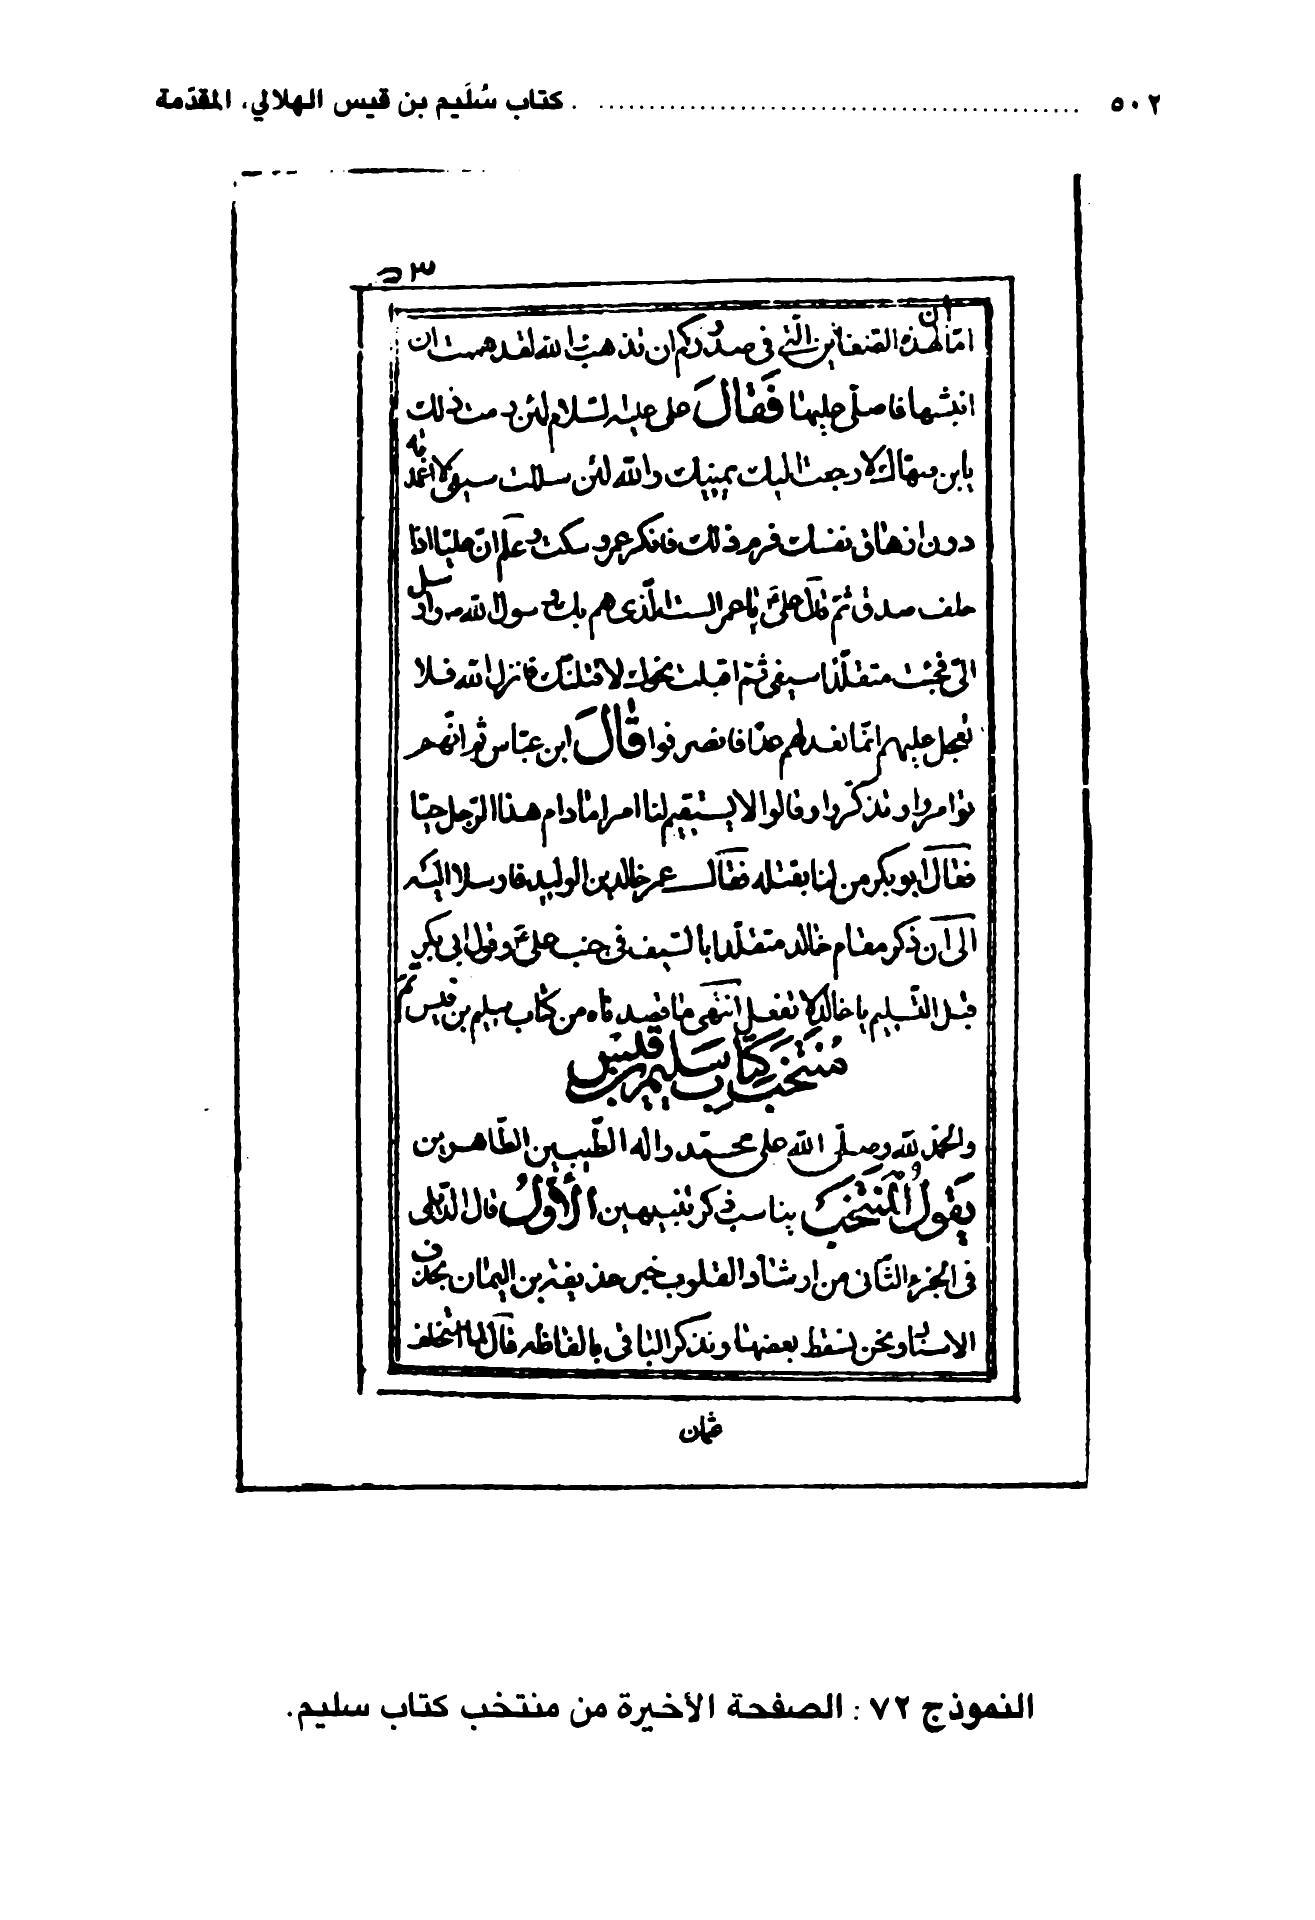 ٥٠٢ ................................................ كتاب سُلَيم بن قيس الهلالي، المقدّمة
اما ان لهذه الضغاين الّتي في صدوركم ان تذهب والله لقد هممت ان
انبشها فاصلّى عليها فَقالَ على عليه السّلام لئن رمت ذلك
يابن صهاك لا رجعت اليك يمينك والله لئن سللت سيفى لا اغمدته
دون ازهاق نفسك فرم ذلك فانكر عمر وسكت وعلم انّ عليّا اذا
حلف صدق ثمّ قال علىّ يا عمر الست الّذى هم بك رسول الله ص وارسل
الىّ فجئت متقلّدا سيفى ثمّ اقبلت نحوك لاقتلنّك فانزل الله فلا
تعجل عليهم انّما نعد لهم عدّا فانصرفوا قالَ ابن عبّاس ثم انّهم
توامروا وتذكّروا وقالوا لا يستقيم لنا امر ما دام هذا الرّجل حيّا
فقال ابوبكر من لنا بقتله فقال عمر خالد بن الوليد فارسلا اليه
الى ان ذكر مقام خالد متقلّدا بالسّيف فى جنب علىّ وقول ابى بكر
قبل التّسليم يا خالد لا تفعل انتهى ما قصدناه من كتاب سليم بن قيس تمّ
مُنتَخَب كتاب سليم بن قيس
والحمد لله وصلّى الله على محمّد واله الطّيبين الطّاهرين
يَقولُ المُنتَخِب يناسب ذكر تنبيهين الأوّلُ قال الدّيلمى
فى الجزء الثّانى من ارشاد القلوب خبر حذيفة بن اليمان بحذف
الاسناد ونحن نسقط بعضها ونذكر الباقى بالفاظه قال لما استخلف
عثمان
النموذج ٧٢ : الصفحة الأخيرة من منتخب كتاب سليم.